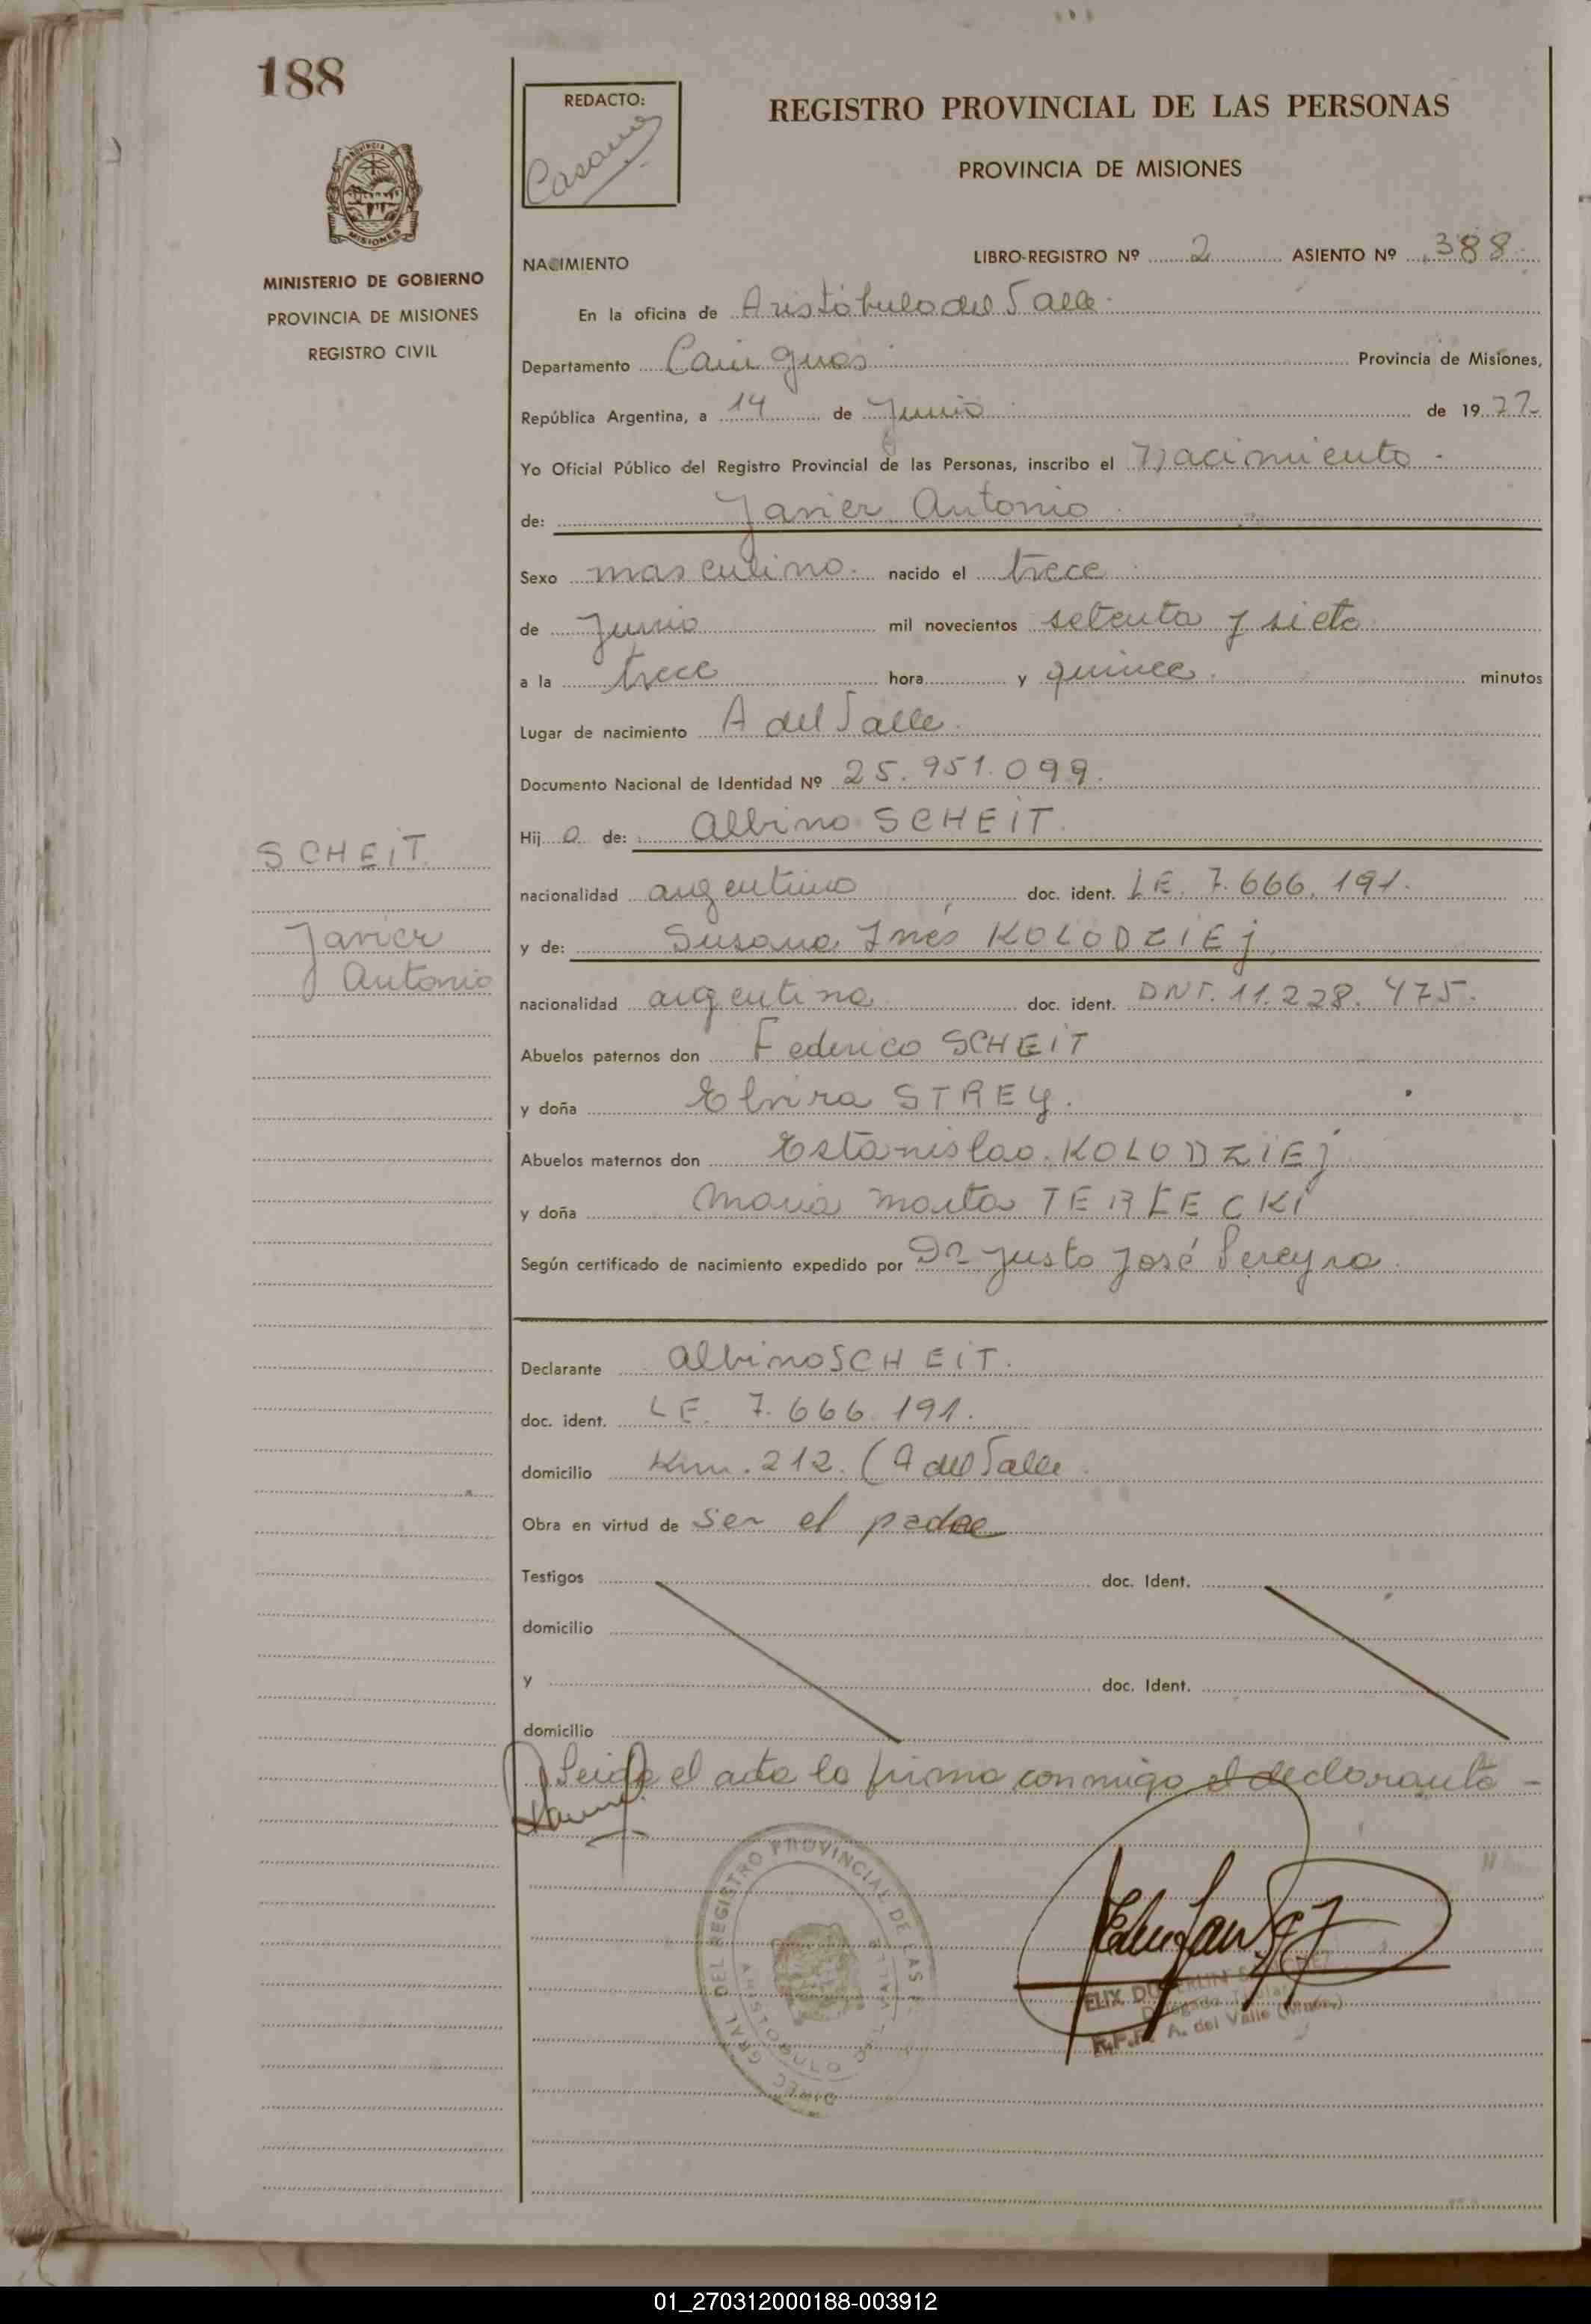 188
REDACTO:
REGISTRO PROVINCIAL DE LAS PERSONAS
PROVINCIA DE MISIONES
MISIONES
MINISTERIO DE GOBIERNO
PROVINCIA DE MISIONES
REGISTRO CIVIL
NACIMIENTO
LIBRO-REGISTRO Nº 2 ASIENTO Nº 388
En la oficina de Aristóbulo del Valle
Departamento Cainguas Provincia de Misiones,
República Argentina, a 14 de Junio de 1977
Yo Oficial Público del Registro Provincial de las Personas, inscribo el Nacimiento
de: Javier Antonio
Sexo masculino nacido el trece
de Junio mil novecientos setenta y siete
a la trece hora y quince minutos
Lugar de nacimiento A del Valle
Documento Nacional de Identidad Nº 25.951.099.
SCHEIT
Javier
Antonio
Hijo de: Albino SCHEIT
nacionalidad argentino doc. ident. LE. 7.666.191.
y de: Susana Inés KOLODZIEJ
nacionalidad argentina doc. ident. DNI. 11.228.475.
Abuelos paternos don Federico SCHEIT
y doña Elvira STREY.
Abuelos maternos don Estanislao KOLODZIEJ
y doña Maria Marta TERLECKI
Según certificado de nacimiento expedido por Dr Justo José Pereyra
Declarante Albino SCHEIT.
doc. ident. LE. 7.666.191.
domicilio Km. 212. (A del Valle
Obra en virtud de ser el padre
Testigos doc. Ident.
domicilio
y doc. Ident.
domicilio
Leida el acta la firma conmigo el declarante
DIREC GRAL DEL REGISTRO PROVINCIAL DE LAS P
ARISTOBULO DEL VALLE
Delegado Titular
R.P.P. A. del Valle (Mnes.)
01_270312000188-003912